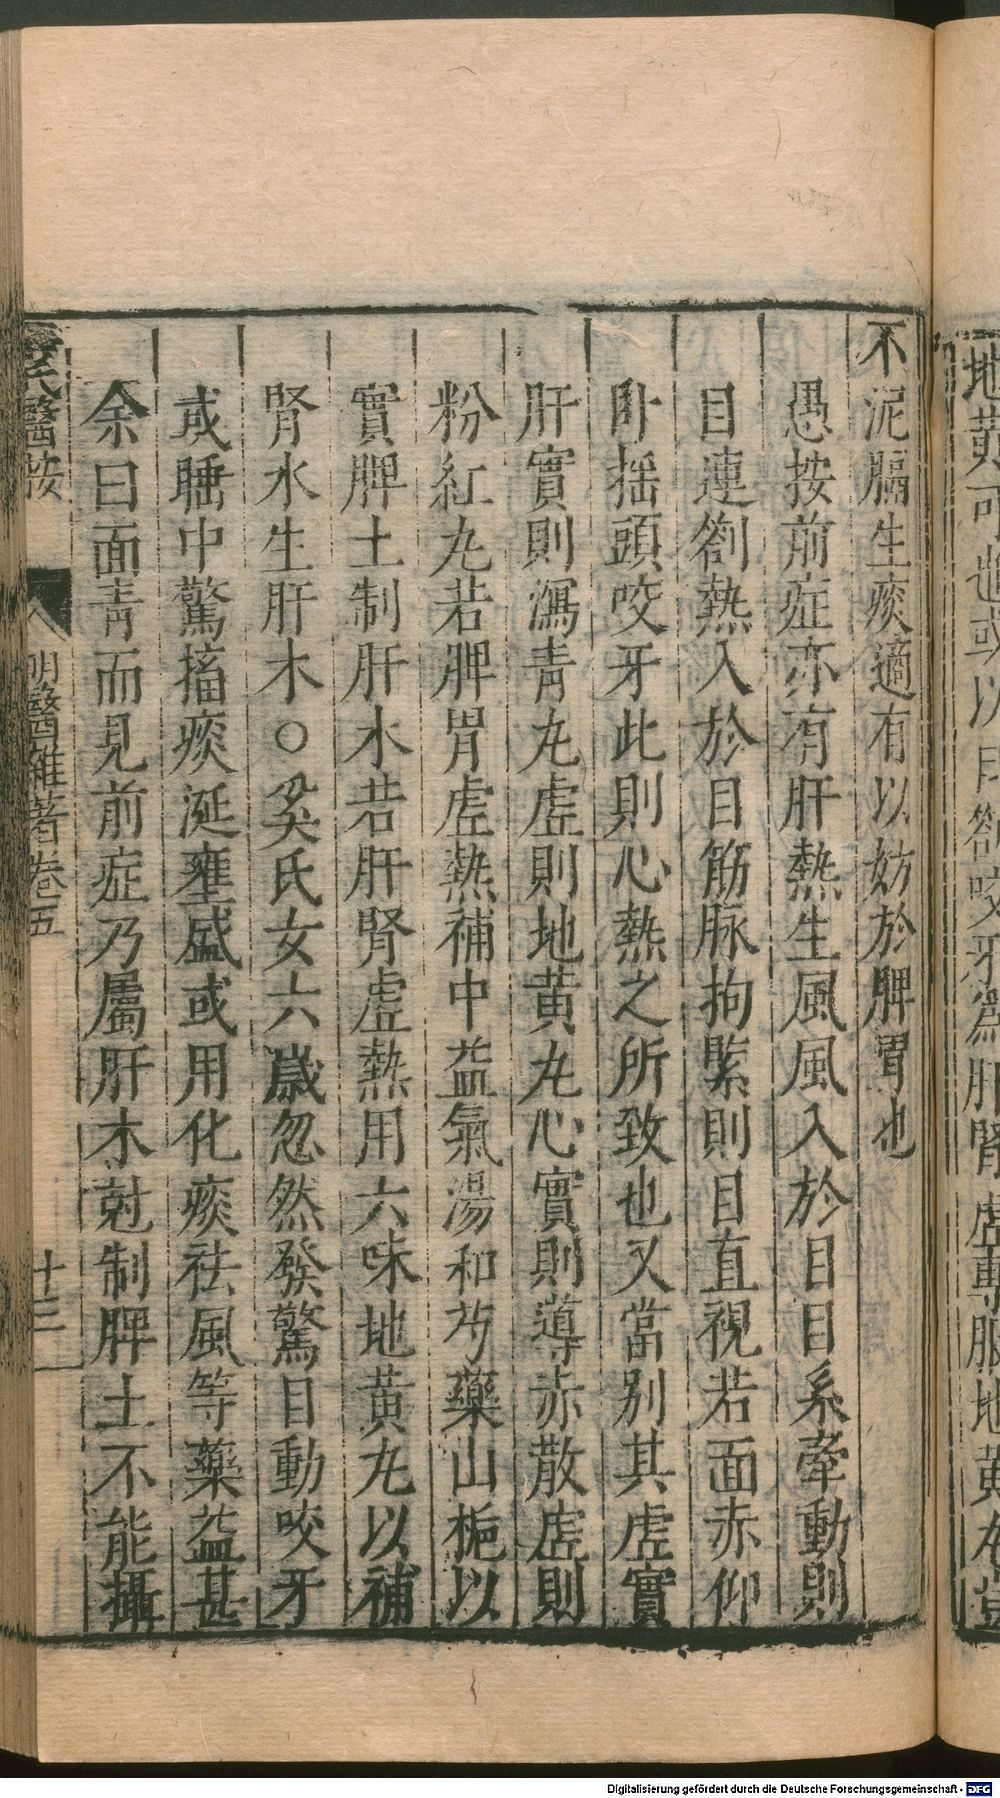 地黃可也或以
不泥膈生痰適有以妨於脾胃也
愚按前症亦有肝熱生風風入於目目系牽動則
目連劄熱入於目筋脉拘緊則目直視若面赤仰
臥揺頭咬牙此則心熱之所致也又當别其虛實
肝實則瀉青丸虛則地黃丸心實則導赤散虛則
粉紅丸若脾胃虛熱補中益氣湯和芍藥山梔以
實脾土制肝木若肝腎虛熱用六味地黃丸以補
腎水生肝木○奚氏女六歳忽然發驚目動咬牙
或睡中驚搐痰涎壅盛或用化痰祛風等藥益甚
余曰面靑而見前症乃屬肝木尅制脾土不能攝
醫按 明醫雜著卷五 十三
Digitalisierung gefördert durch die Deutsche Forschungsgemeinschaft - DFG